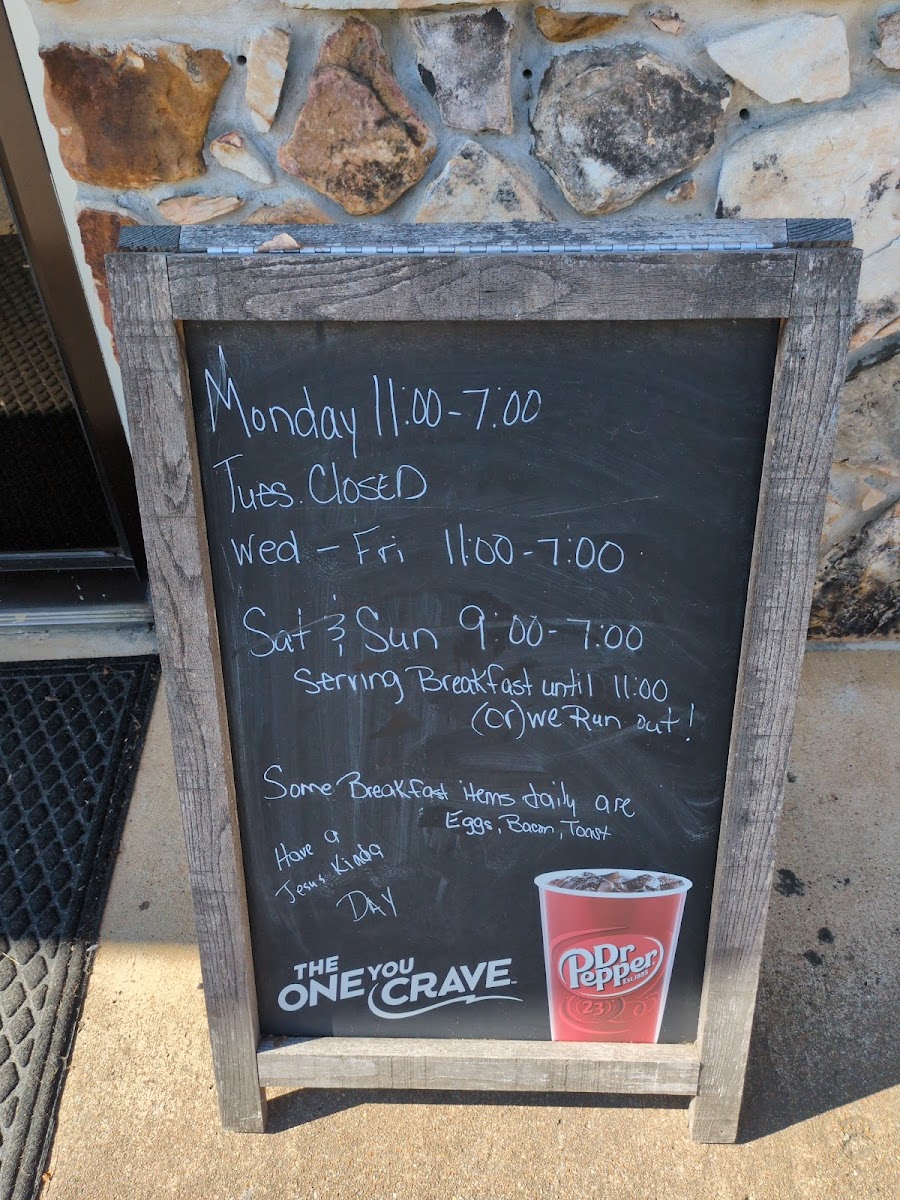 Monday 11:00-7:00
Tues. Closed
Wed - Fri 11:00-7:00
Sat & Sun 9:00-7:00
Serving Breakfast until 11:00
(or) we Run out!
Some Breakfast items daily are
Eggs, Bacon, Toast
Have a
Jesus Kinda
DAY
THE
ONE YOU
CRAVE
Dr
Pepper
EST. 1885
23